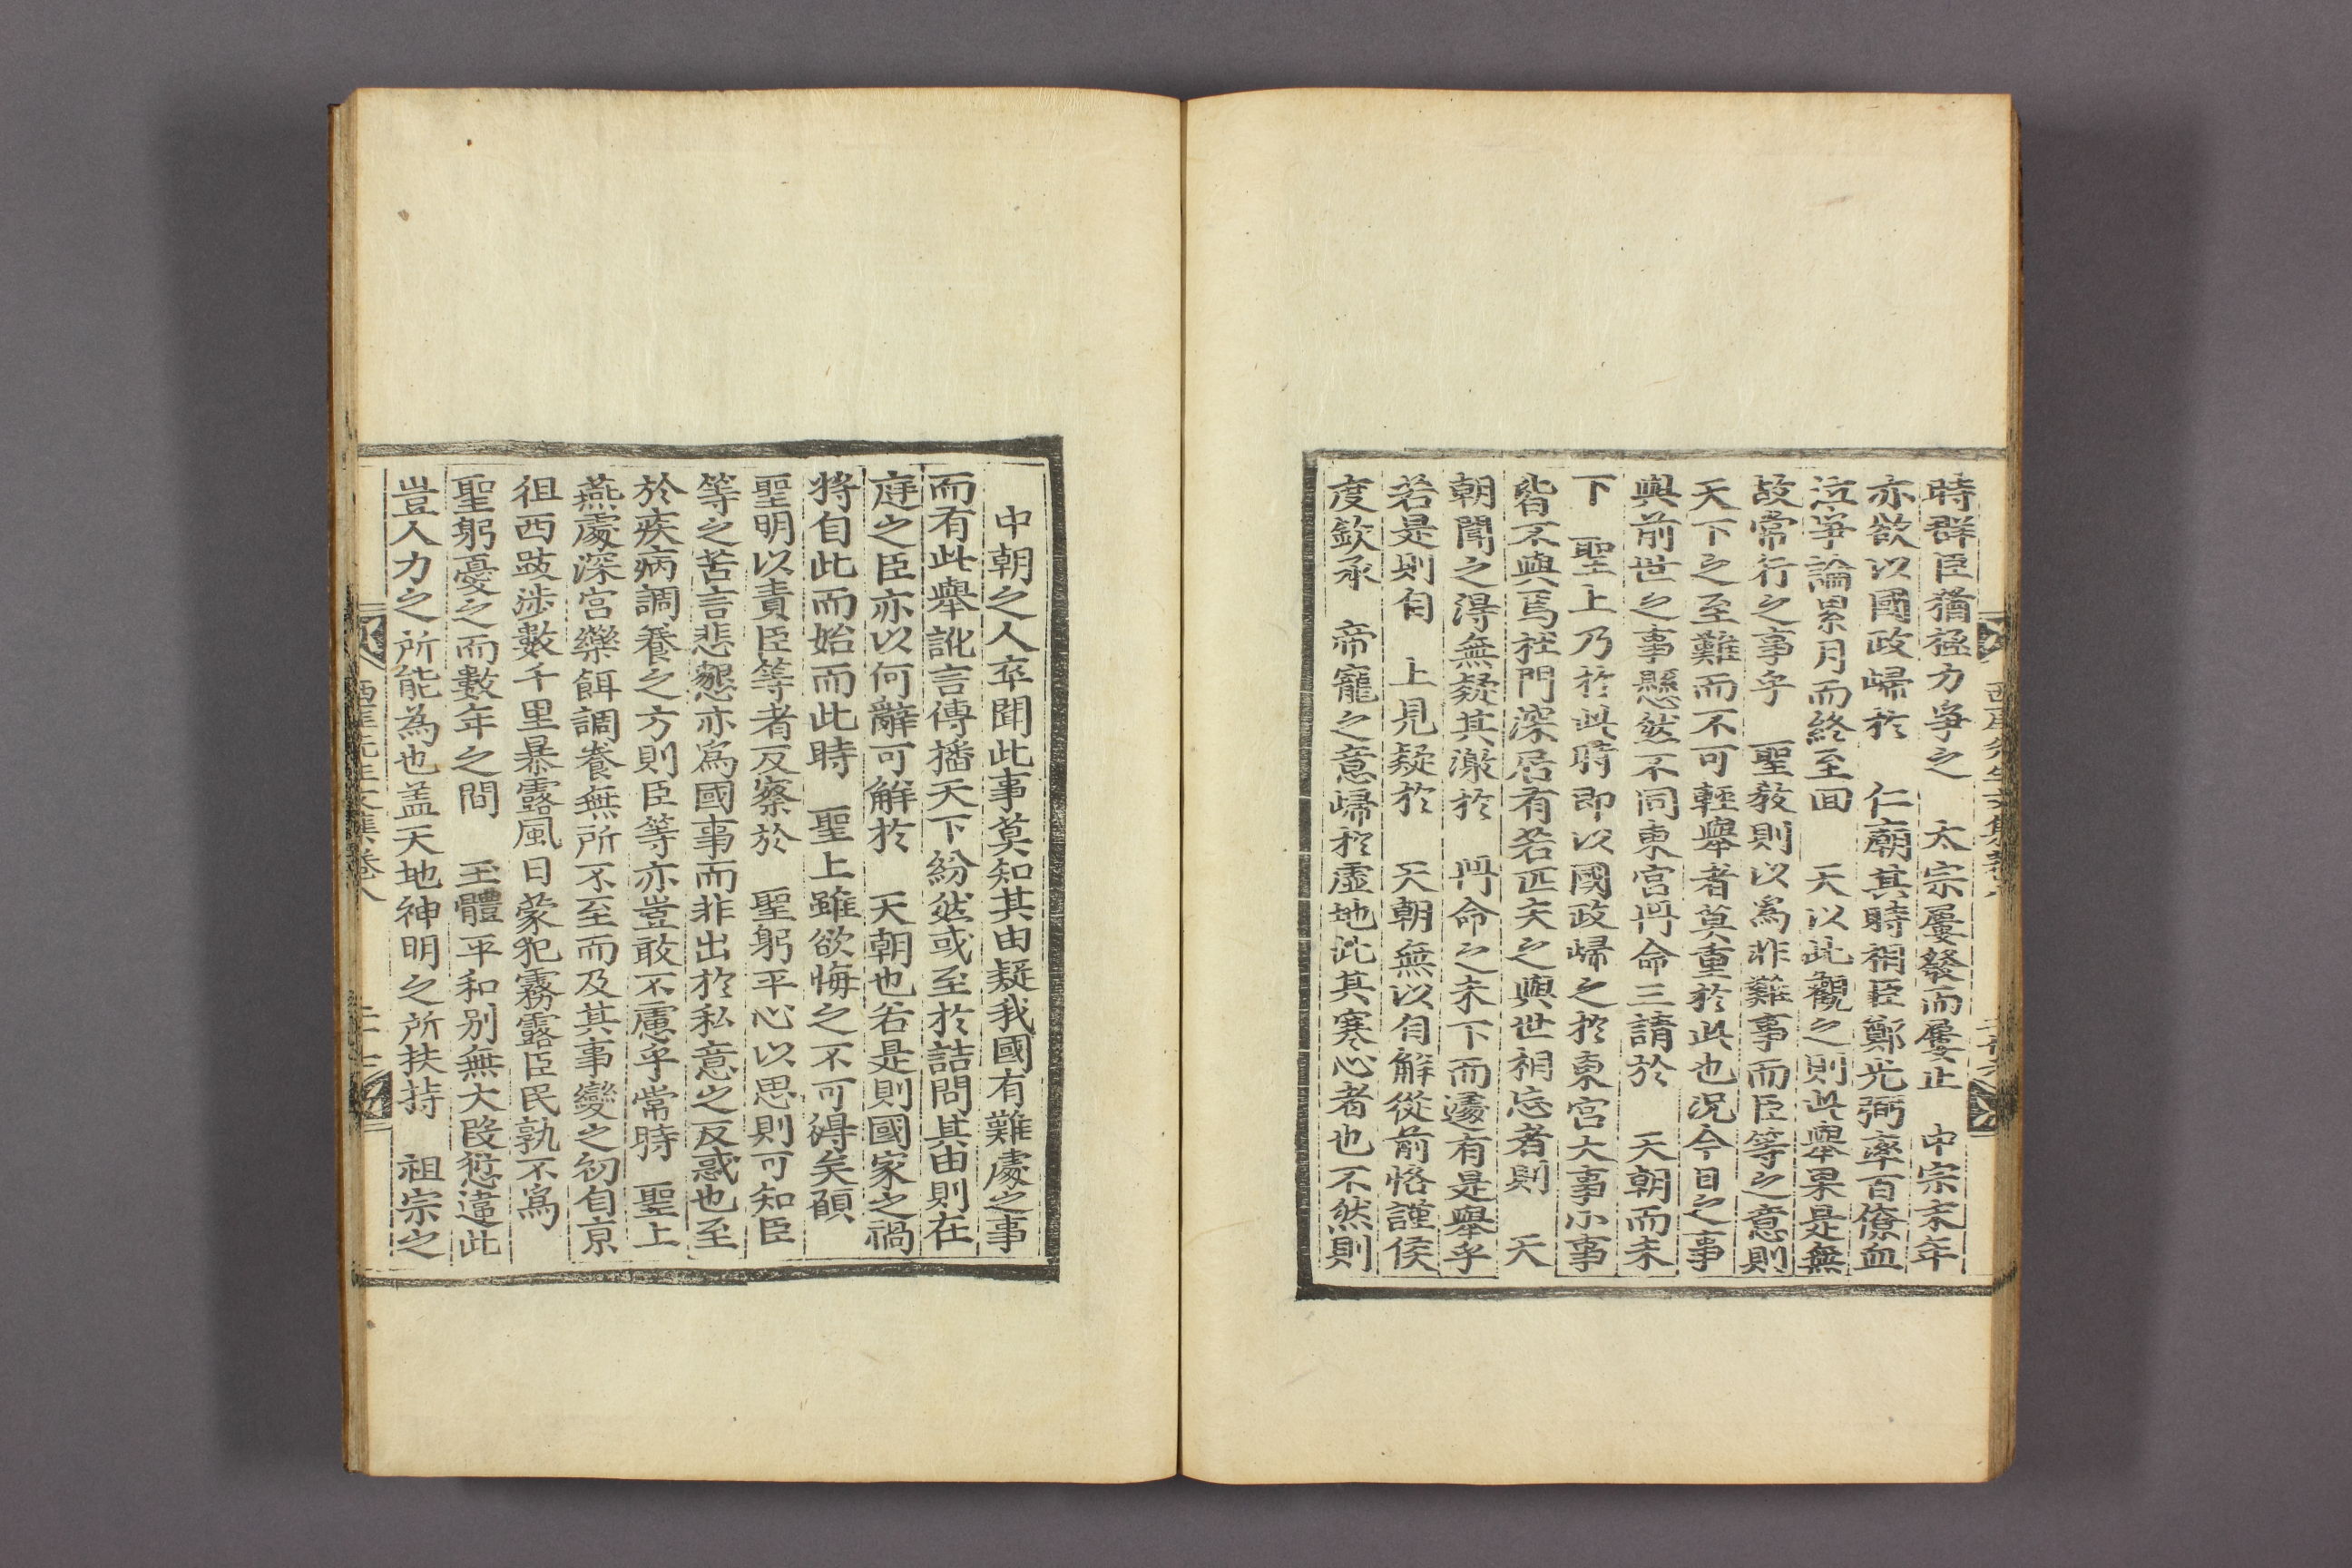 時群臣猶極力爭之　太宗屢發而屢止　中宗末年
亦欲以國政歸於　仁廟其時相臣鄭光弼率百僚血
泣爭論累月而終至回　天以此觀之則此擧果是無
故常行之事乎　聖敎則以爲非難事而臣等之意則
天下之至難而不可輕擧者莫重於此也况今日之事
與前世之事懸然不同東宮冊命三請於　天朝而未
下　聖上乃於此時即以國政歸之於東宮大事小事
皆不與焉杜門深居有若匹夫之與世相忘者則　天
朝聞之得無疑其激於　冊命之未下而遽有是擧乎
若是則自　上見疑於　天朝無以自解從前恪謹侯
度欽承　帝寵之意歸於虛地此其寒心者也不然則
西厓先生文集卷八
中朝之人卒聞此事莫知其由疑我國有難處之事
而有此擧訛言傳播天下紛然或至於詰問其由則在
庭之臣亦以何辭可解於　天朝也若是則國家之禍
將自此而始而此時　聖上雖欲悔之不可得矣願
聖明以責臣等者反察於　聖躬平心以思則可知臣
等之苦言悲懇亦爲國事而非出於私意之反惑也至
於疾病調養之方則臣等亦豈敢不慮乎常時　聖上
燕處深宮藥餌調養無所不至而及其事變之初自京
徂西跋涉數千里暴露風日蒙犯霧露臣民孰不爲
聖躬憂之而數年之間　玉體平和別無大段愆違此
豈人力之所能為也盖天地神明之所扶持　祖宗之
西厓先生文集卷八